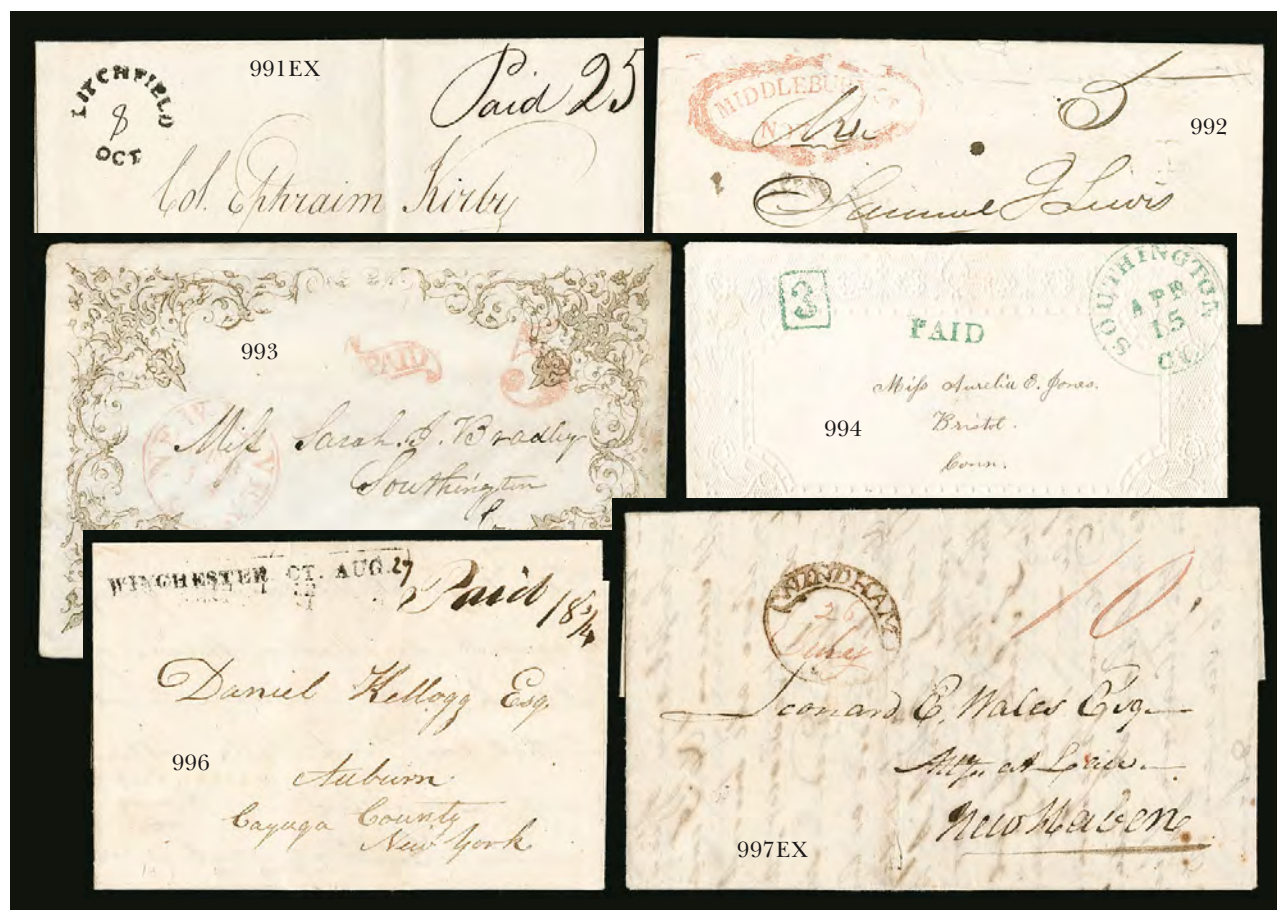 LITCHFIELD
8
OCT
991EX
Paid 25
Col. Ephraim Kirby
MIDDLEBURY
5
992
Samuel J Lewis
993
PAID
5
Miss Sarah J. Bradley
Southington
3
PAID
SOUTHINGTON
APR
15
CT.
Miss Aurelia E. Jones.
994
Bristol.
Conn.
WINCHESTER CT. AUG. 27
Paid 18 3/4
Daniel Kellogg Esq.
996
Auburn
Cayuga County
New York
WINDHAM
26
June
10
Leonard E. Wales Esq
Atty. at Law
New Haven
997EX